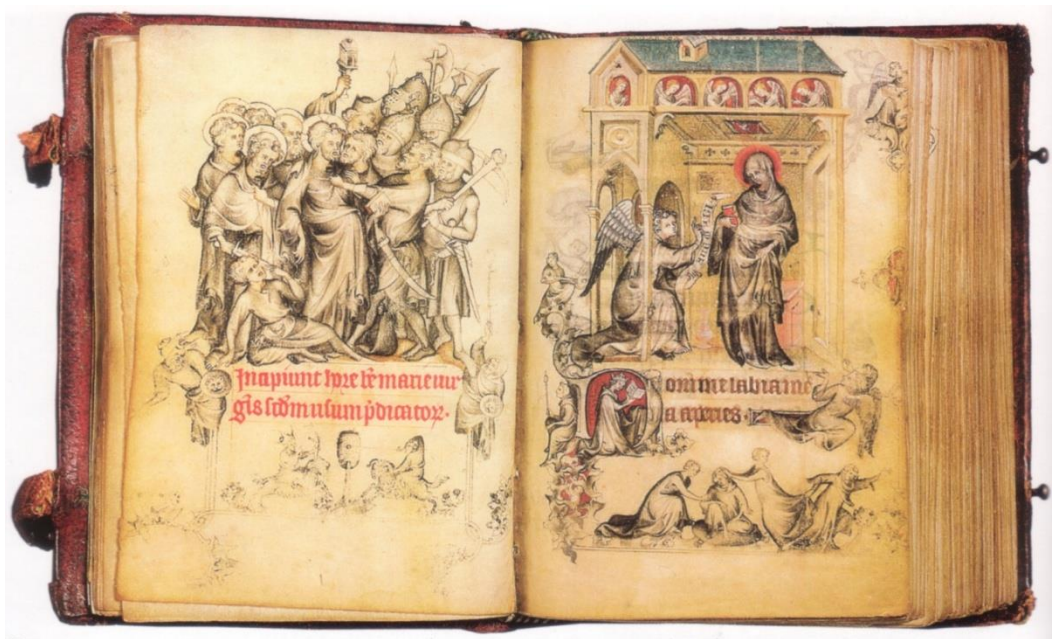 Incipiunt hore bē marie uir
gīs scdm usum p̄dicatoꝝ·
Domine labia me
a aperies·